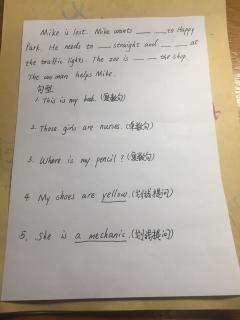 Mike is lost. Mike wants __ __ to Happy
Park. He needs to __ straight and __ __ at
the traffic lights. The zoo is __ __ the shop.
The woman helps Mike.
句型
1. This is my book. (复数句)
2. Those girls are nurses. (单数句)
3. Where is my pencil? (复数句)
4 My shoes are yellow. (划线提问)
5. She is a mechanic. (划线提问)